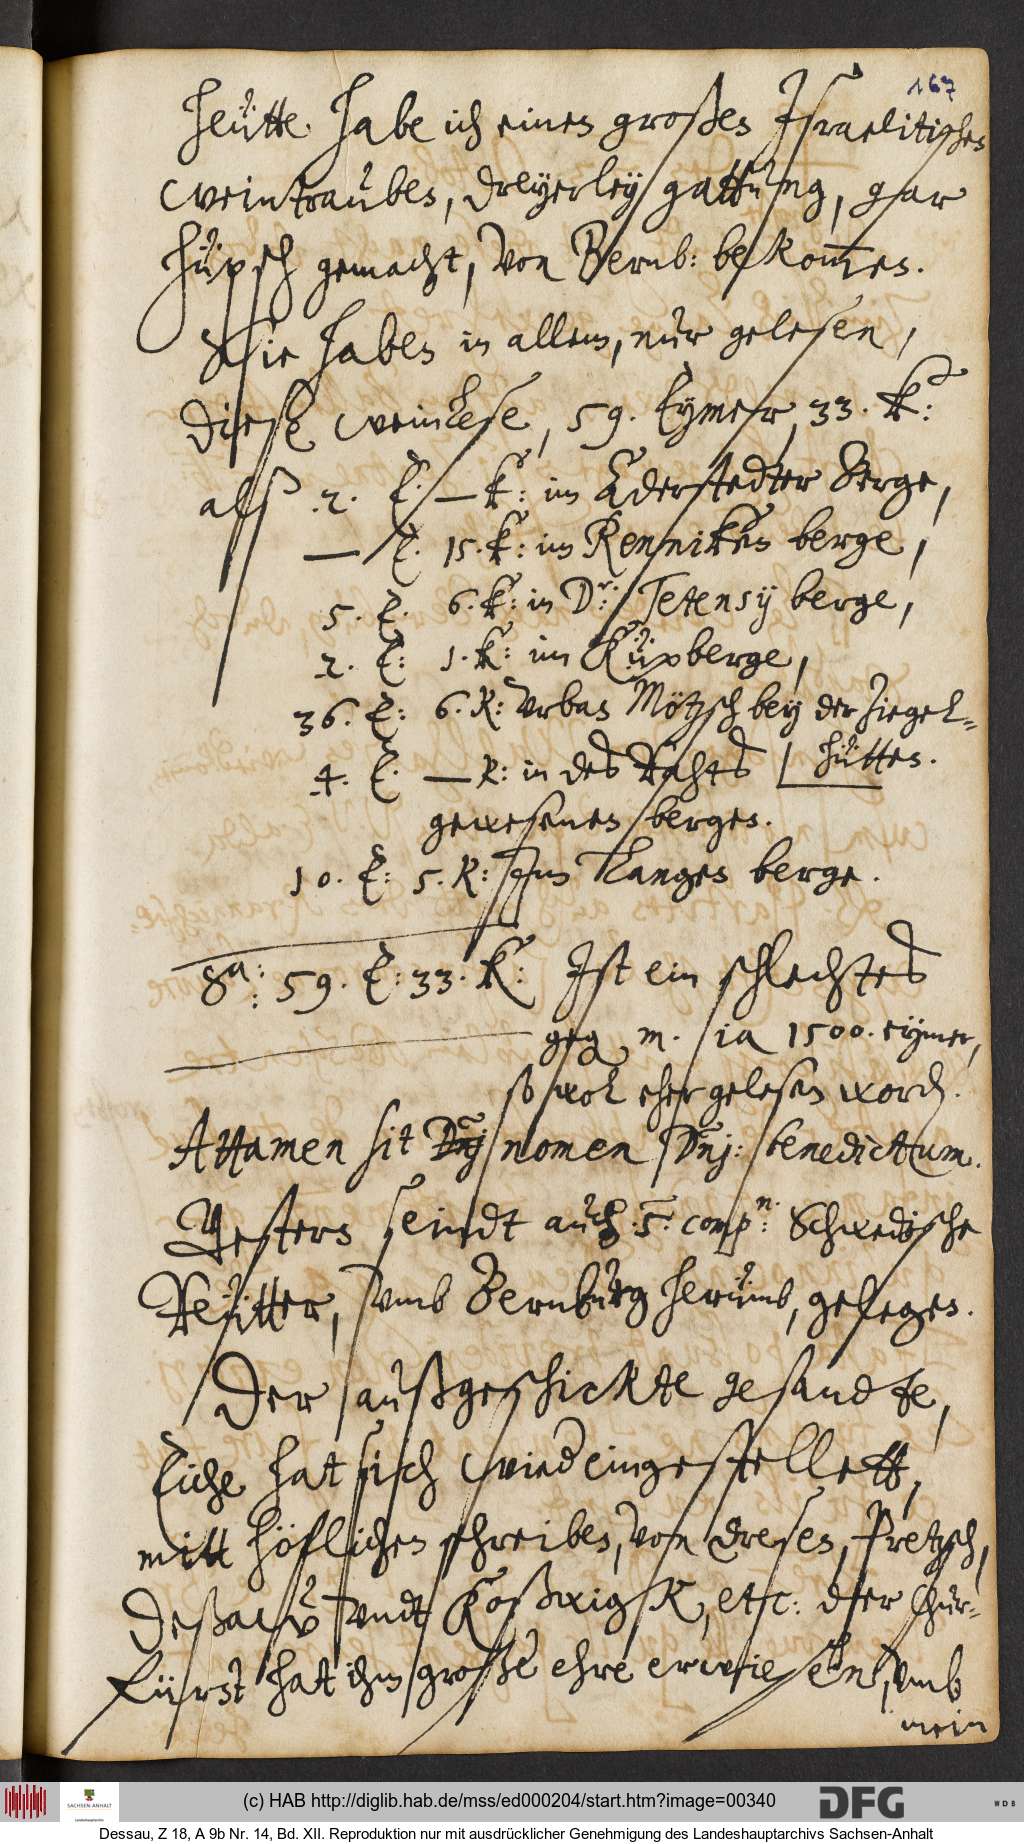 167
Heütte habe ich einen großen Israelitischen
weintrauben, dreyerley gattung, gar
hüpsch gemacht, von Bernb: bekom̅en.
Sie haben in allem, nur gelesen,
diese weinlese, 59. Eymer, 33. K:
alß 2. E. — K: im Aderstedter Berge,
— E. 15. K: im Renniken berge,
5. E. 6. K: in Dr: Tetensij berge,
2. E: 1. K: im Küxberge,
36. E: 6. K: Vrban Mötzsch bey der Ziegel=
4. E. — K: in des Rahts hütten.
gewesenen berges.
10. E: 5. K: Im Langen berge.
Sa: 59. E: 33. K: Ist ein schlechtes
geg m. ja 1500. eymer,
so wol eher gelesen word.
Attamen sit nomen Dnj: benedictum.
Gestern seindt auch 5. compn: Schwedische
Reütter, vmb Bernburg herümb, gelegen.
Der außgeschickte gesandte,
Eiche hat sich wied eingestellett,
mitt höflichen schreiben, von Dresen, Pretzsch,
Deßaw vndt Koßwigk, etc: der Chur-
fürst hat ihm große ehre erwiesen, vmb
mein
(c) HAB http://diglib.hab.de/mss/ed000204/start.htm?image=00340
SACHSEN-ANHALT
Landeshauptarchiv
DFG
WDB
Dessau, Z 18, A 9b Nr. 14, Bd. XII. Reproduktion nur mit ausdrücklicher Genehmigung des Landeshauptarchivs Sachsen-Anhalt